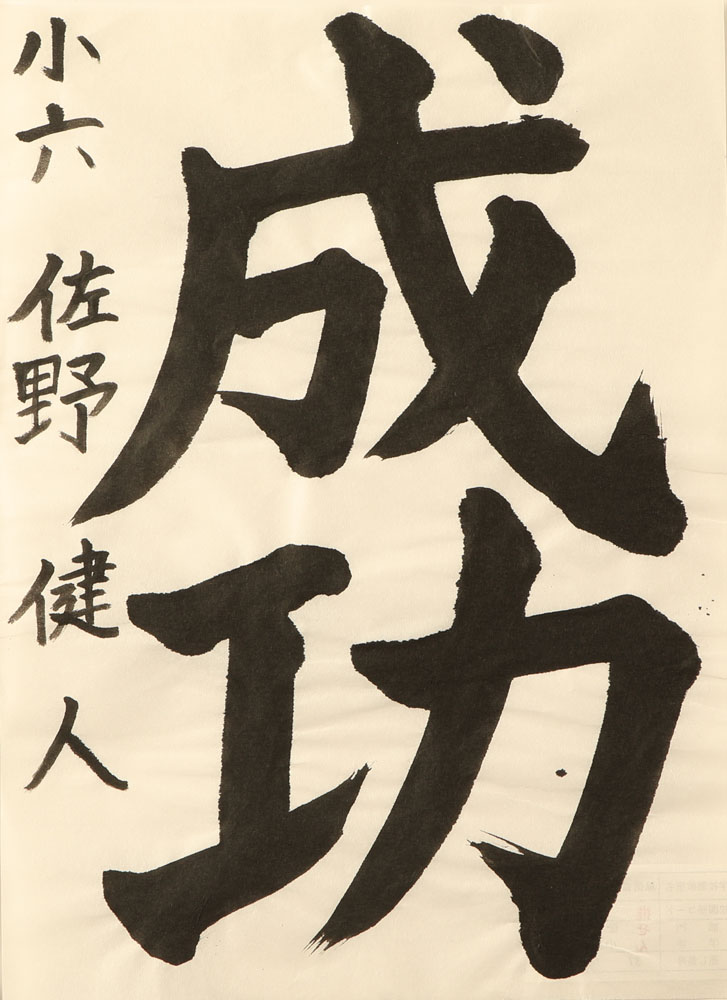 成功
小六 佐野 健人